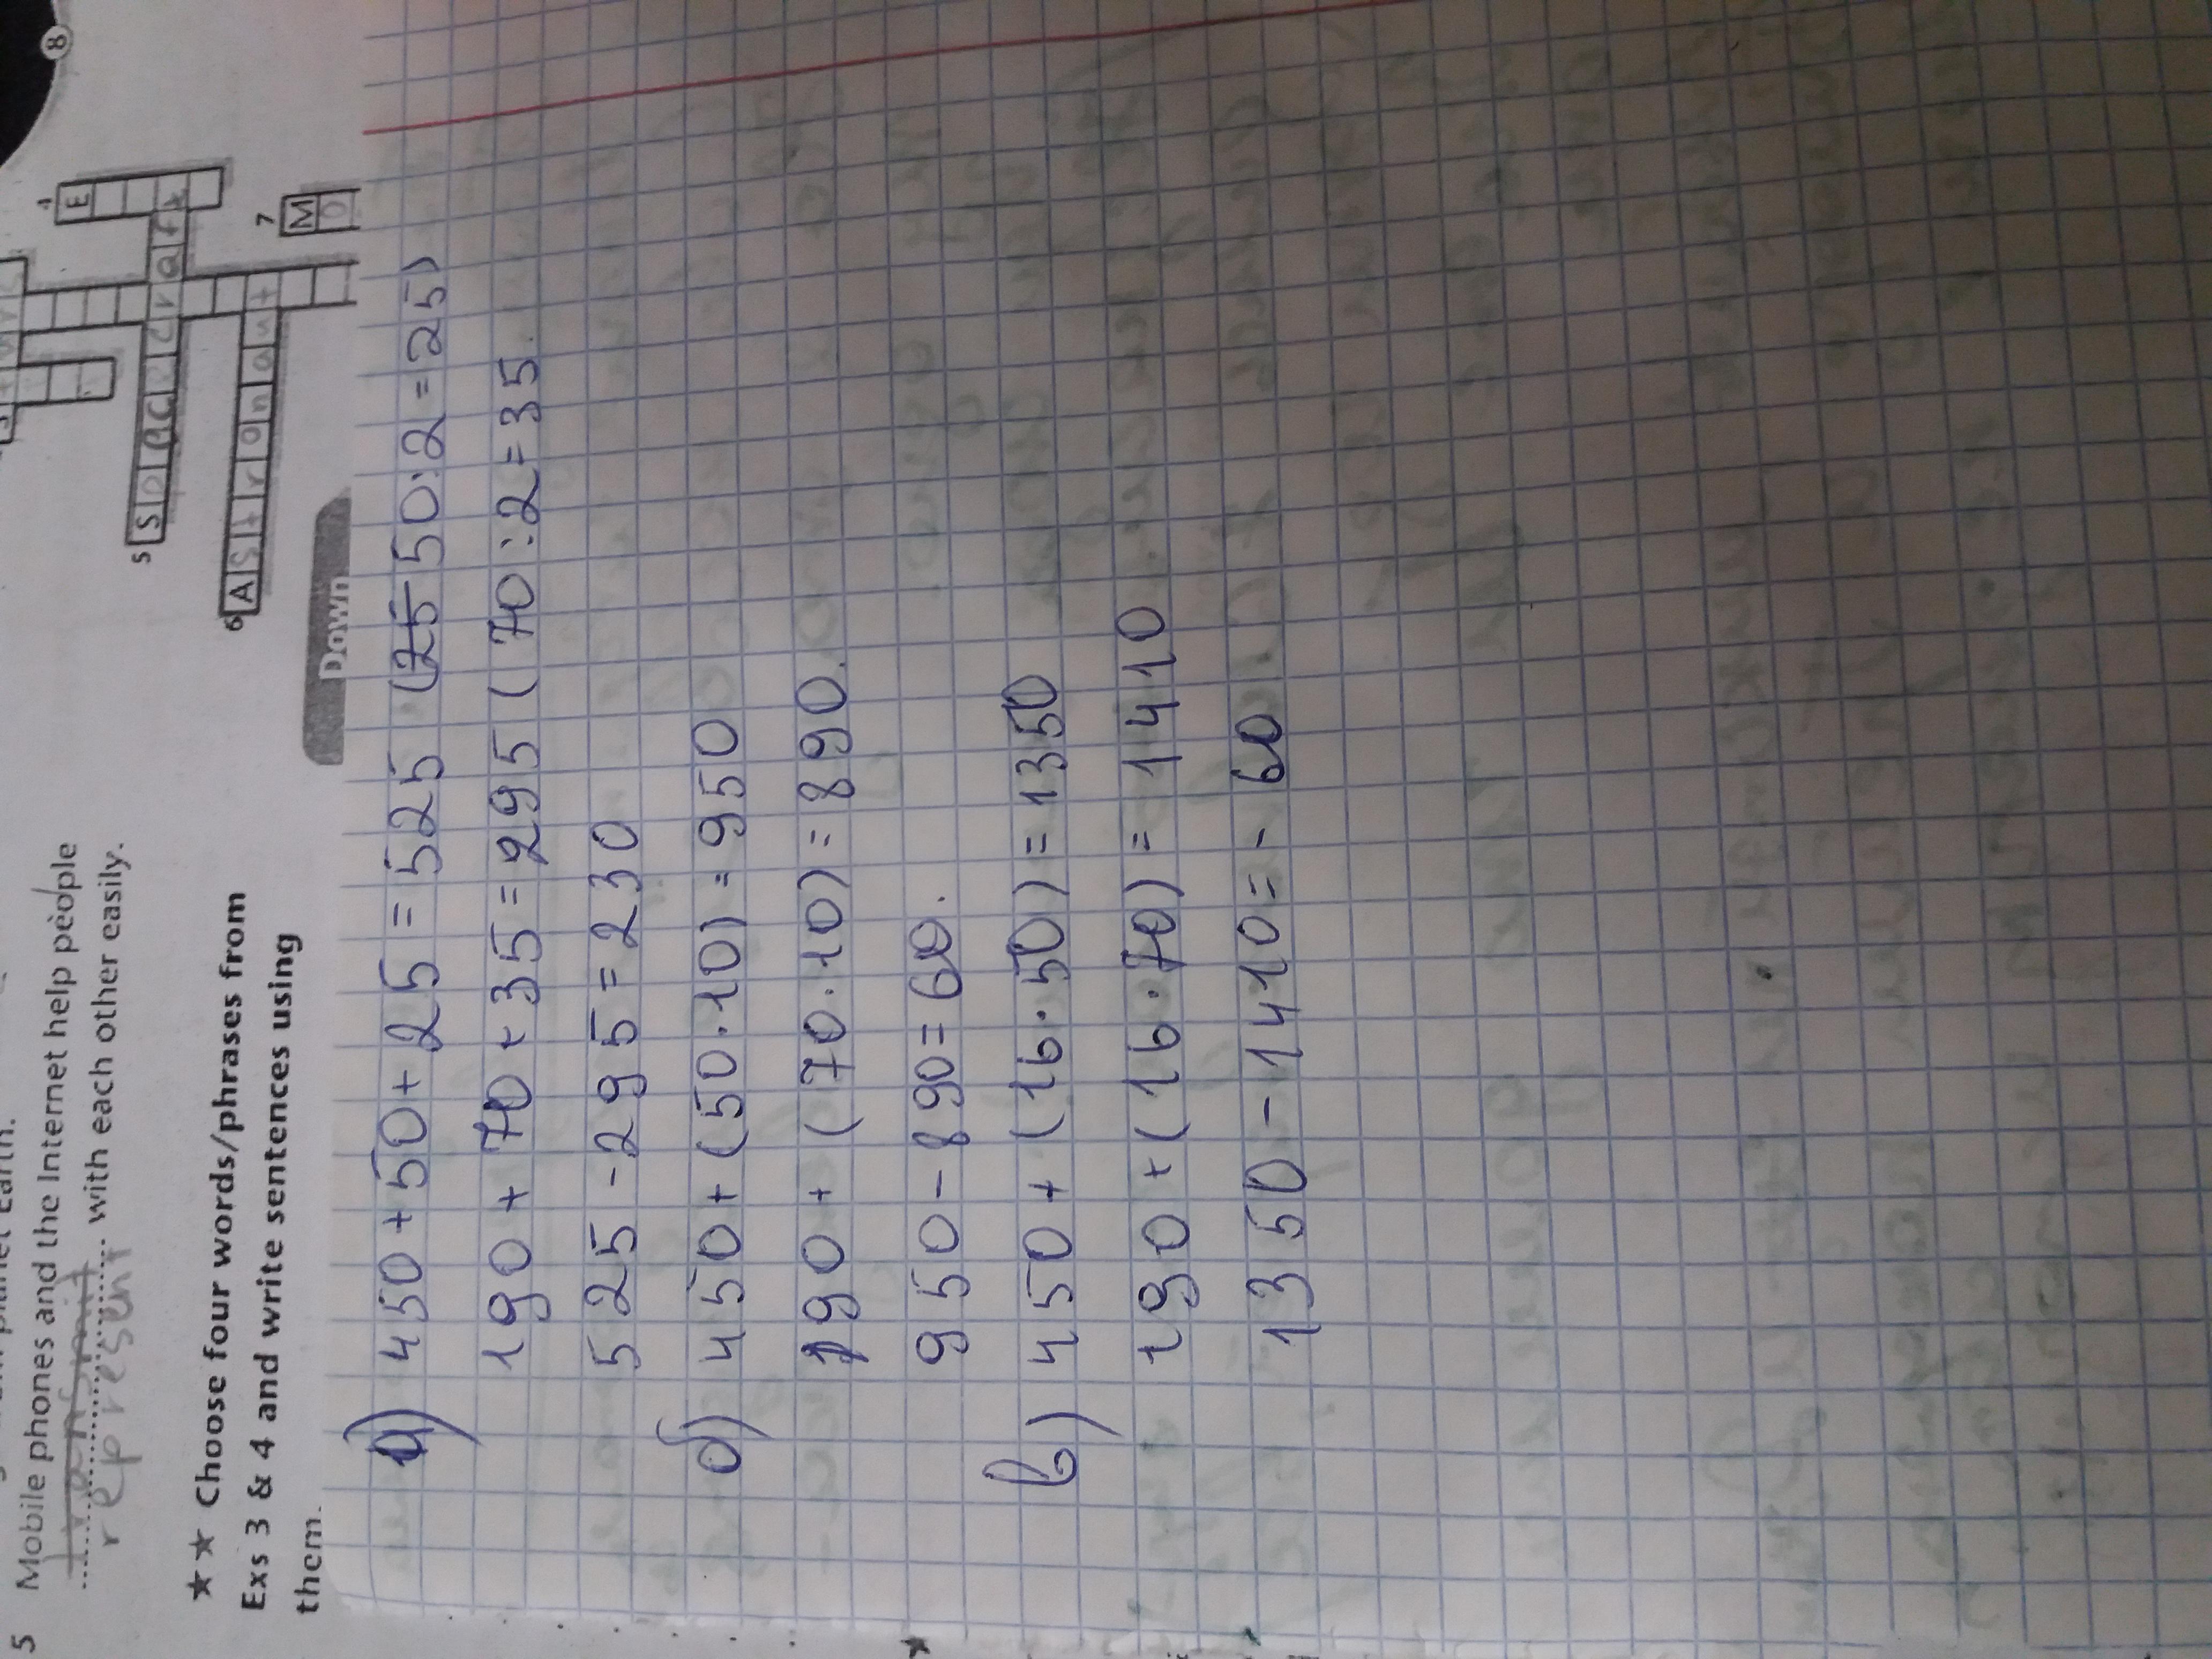 8
5 Mobile phones and the Internet help people
transmit
represent with each other easily.
★★ Choose four words/phrases from
Exs 3 & 4 and write sentences using
them.
4
E
5 Spacecraft
6 Astronaut
7
M
o
Down
а) 450+50+25=525 (25 50:2=25)
190+70+35=295 (70:2=35
525-295=230
б) 450+(50·10)=950
190+(70·10)=890.
950-890=60.
в) 450+(16·50)=1350
190+(16·70)=1410
1350-1410=-60